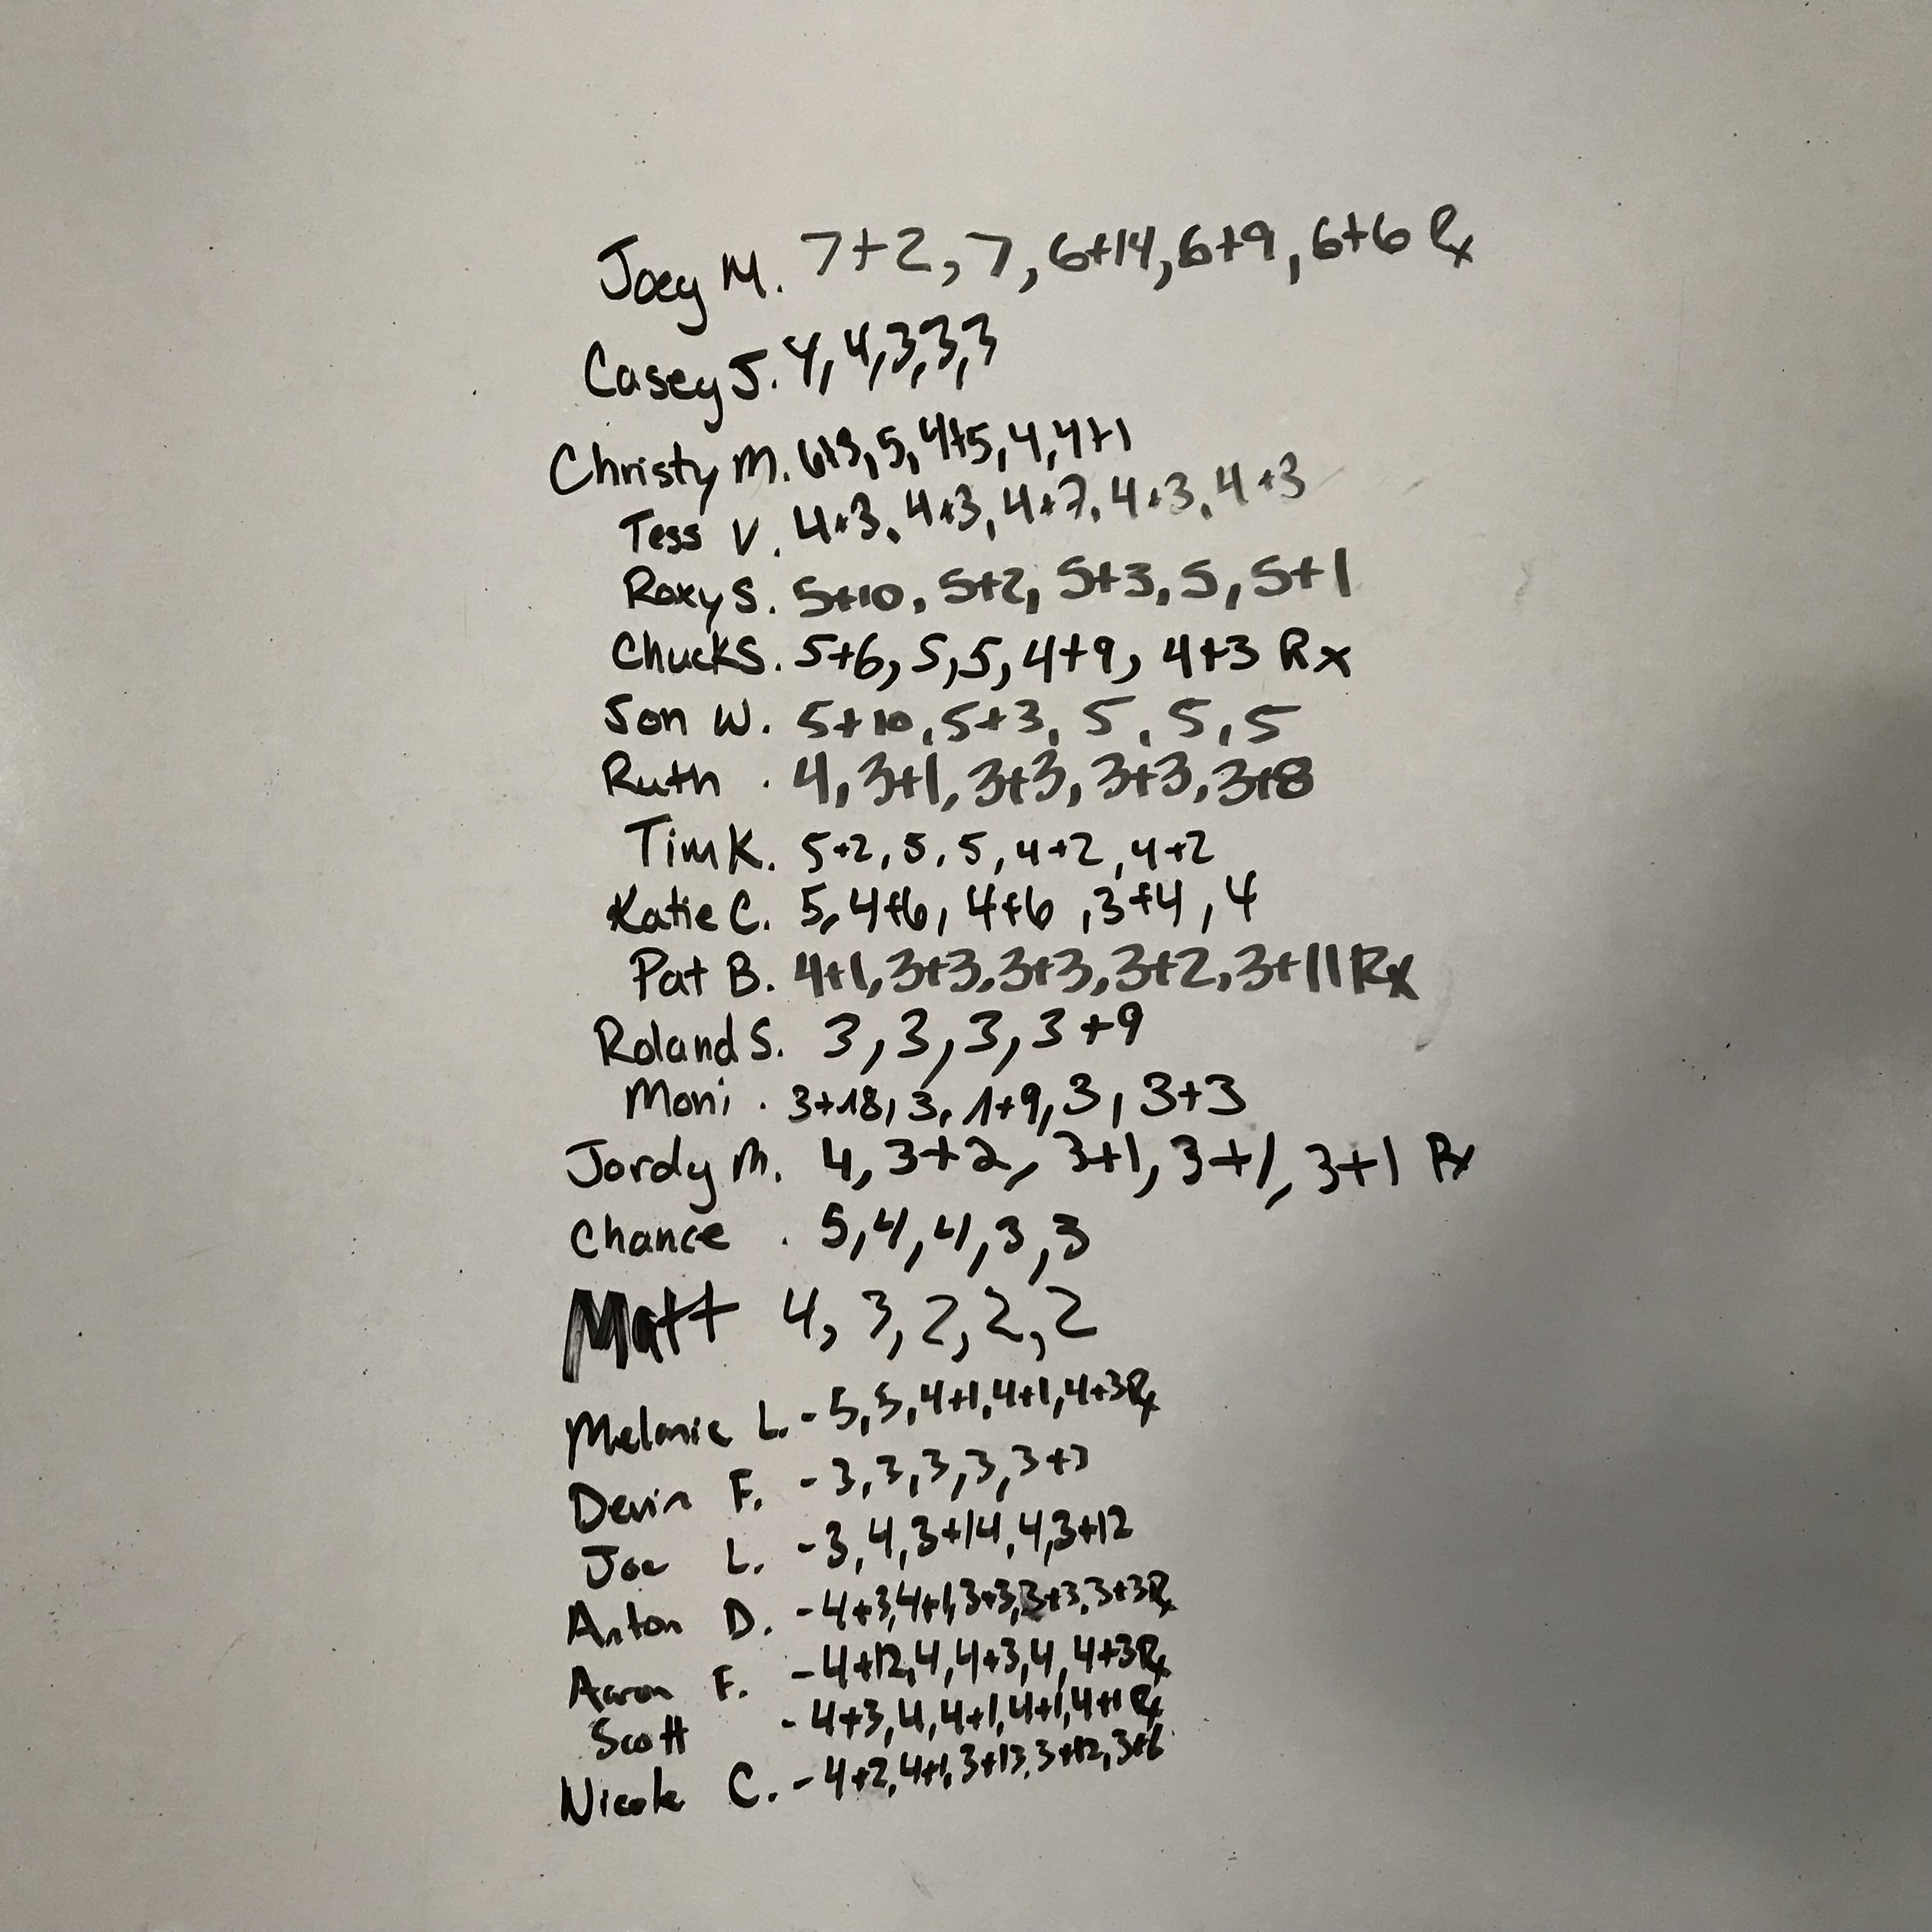 Joey M. 7+2, 7, 6+14, 6+9, 6+6 Rx
Casey J. 4, 4, 3, 3, 3
Christy M. 6+3, 5, 4+5, 4, 4+1
Tess V. 4+3, 4+3, 4+7, 4+3, 4+3
Roxy S. 5+10, 5+2, 5+3, 5, 5+1
Chuck S. 5+6, 5, 5, 4+9, 4+3 Rx
Jon W. 5+10, 5+3, 5, 5, 5
Ruth . 4, 3+1, 3+3, 3+3, 3+8
Tim K. 5+2, 5, 5, 4+2, 4+2
Katie C. 5, 4+6, 4+6, 3+4, 4
Pat B. 4+1, 3+3, 3+3, 3+2, 3+11 Rx
Roland S. 3, 3, 3, 3+9
Moni . 3+18, 3, 1+9, 3, 3+3
Jordy M. 4, 3+2, 3+1, 3+1, 3+1 Rx
Chance . 5, 4, 4, 3, 3
Matt 4, 3, 2, 2, 2
Melanie L. - 5, 5, 4+1, 4+1, 4+3 Rx
Devin F. - 3, 3, 3, 3, 3+3
Joe L. - 3, 4, 3+14, 4, 3+12
Anton D. - 4+3, 4+1, 3+3, 3+3, 3+3 Rx
Aaron F. - 4+12, 4, 4+3, 4, 4+3 Rx
Scott - 4+3, 4, 4+1, 4+1, 4+1 Rx
Nicole C. - 4+2, 4+1, 3+13, 3+12, 3+6